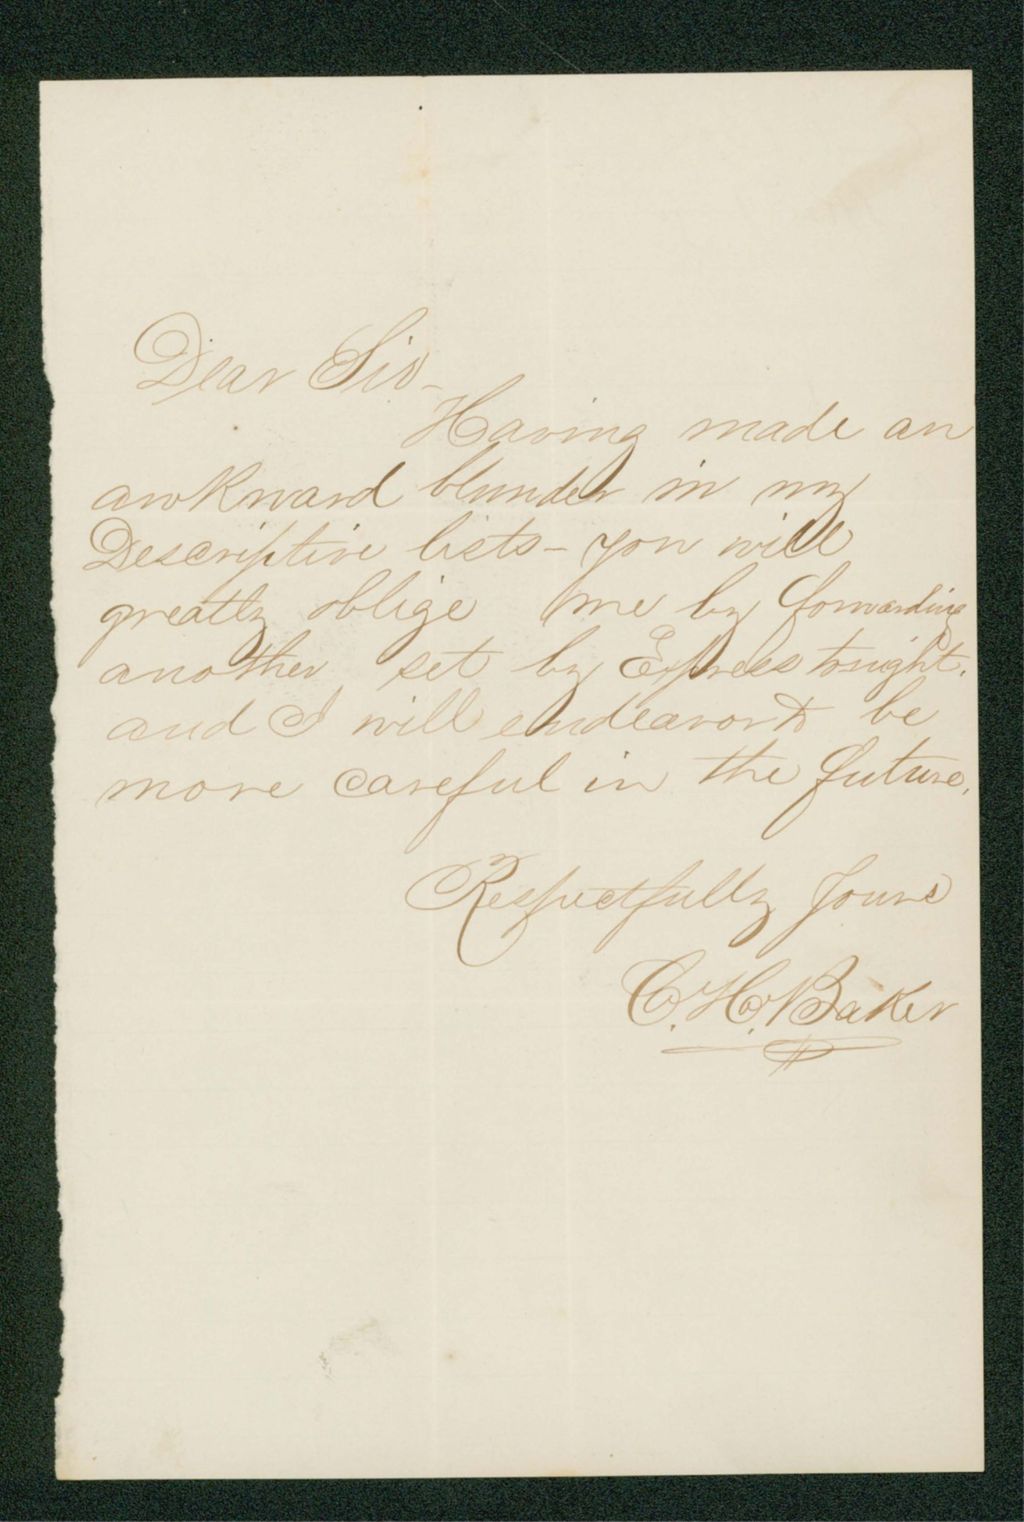 Dear Sir -
Having made an
awkward blunder in my
Descriptive lists - you will
greatly oblige me by forwarding
another set by Express tonight.
and I will endeavor to be
more careful in the future.
Respectfully Yours
C. H. Baker